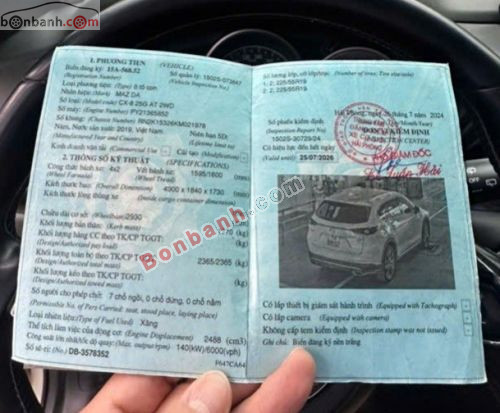 bonbanh.com
1. PHƯƠNG TIỆN (VEHICLE)
Biển đăng ký: 15A-568.52
(Registration Number)
Số quản lý: 1502S-073647
(Vehicle Inspection No.)
Loại phương tiện: (Type) Ô tô con
Nhãn hiệu: (Mark) MAZDA
Số loại: (Model code) CX-8 25G AT 2WD
Số máy: (Engine Number) PY21965852
Số khung: (Chassis Number) RN2KT5326KM021978
Năm, Nước sản xuất: 2019, Việt Nam
(Manufactured Year and Country)
Niên hạn SD:
(Lifetime limit to)
Kinh doanh vận tải (Commercial Use)
Cải tạo (Modification)
2. THÔNG SỐ KỸ THUẬT (SPECIFICATION)
Công thức bánh xe: 4x2
(Wheel Formula)
Vết bánh xe: 1595/1600
(Wheel Tread)
Kích thước bao: (Overall Dimension) 4900 x 1840 x 1730 (mm)
Kích thước lòng thùng xe
(Inside cargo container dimension)
Chiều dài cơ sở: (Wheelbase) 2930
Khối lượng bản thân: (Kerb mass)
Khối lượng hàng CC theo TK/CP TGGT:
(Design/Authorized pay load)
Khối lượng toàn bộ theo TK/CP TGGT: 2365/2365 (kg)
(Design/Authorized total mass)
Khối lượng kéo theo TK/CP TGGT:
(Design/Authorized towed mass)
Số người cho phép chở: 7 chỗ ngồi, 0 chỗ đứng, 0 chỗ nằm
(Permissible No. of Pers Carried: seat, stood place, laying place)
Loại nhiên liệu: (Type of Fuel Used) Xăng
Thể tích làm việc của động cơ: (Engine Displacement) 2488 (cm3)
Công suất lớn nhất/tốc độ quay: (Max. output/rpm) 140(kW)/6000(vph)
Số sê-ri: (No.) DB-3578352
Số lượng lốp, cỡ lốp/trục
(Number of tires; Tire size/axle)
1: 2; 225/55R19
2: 2; 225/55R19
Số phiếu kiểm định
(Inspection Report No)
1502S-30725/24
Có hiệu lực đến hết ngày
(Valid until) 25/07/2026
Hải Phòng, ngày 26 tháng 7 năm 2024
Bonbanh.com
Có lắp thiết bị giám sát hành trình (Equipped with Tachograph)
Có lắp camera (Equipped with camera)
Không cấp tem kiểm định (Inspection stamp was not issued)
Ghi chú: Biển đăng ký nền trắng
bonbanh.com